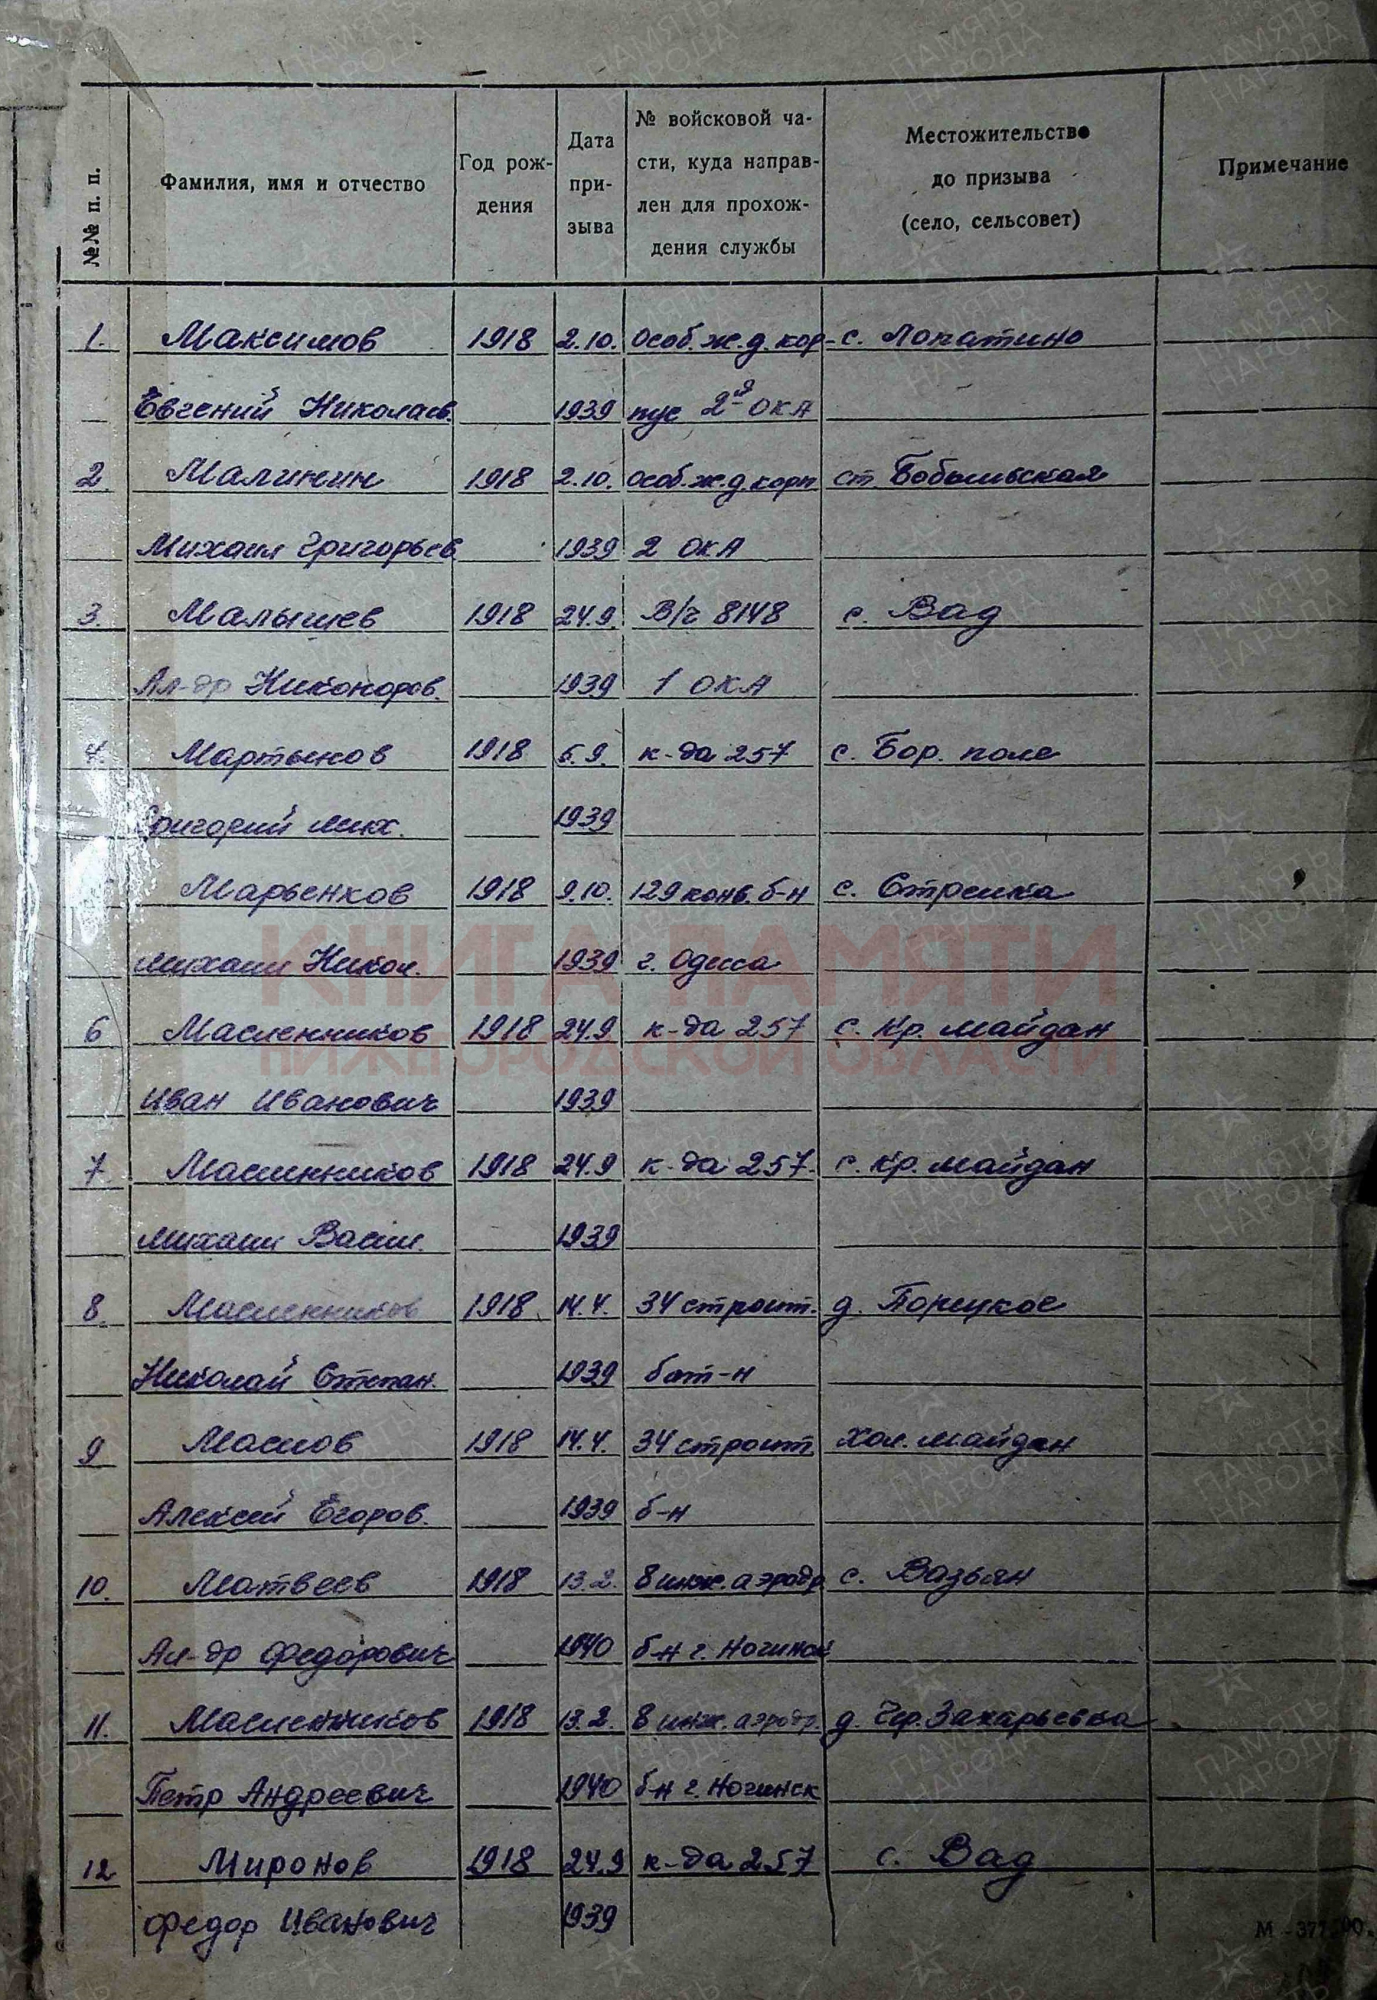 №№ п. п.
Фамилия, имя и отчество
Год рож-
дения
Дата
при-
зыва
№ войсковой ча-
сти, куда направ-
лен для прохож-
дения службы
Местожительство
до призыва
(село, сельсовет)
Примечание
1. Максимов 1918 2.10. Особ. ж.д. кор- с. Лопатино
Евгений Николаев. 1939 пус 2й ОКА
2. Малинин 1918 2.10. Особ. ж.д. корп ст. Бобыльская
Михаил Григорьев. 1939 2 ОКА
3. Малышев 1918 24.9. В/ч 8148 с. Вад
Ал-др Никоноров. 1939 1 ОКА
4. Мартынов 1918 6.9. к-да 257 с. Бор. поле
Григорий Мих. 1939
Марьенков 1918 9.10. 129 конв. б-н с. Стрелка
Михаил Никол. 1939 г. Одиса
6 Масленников 1918 24.9 к-да 257 с. Кр. Майдан
Иван Иванович 1939
7. Масленников 1918 24.9 к-да 257. с. Кр. Майдан
Михаил Васил. 1939
8. Масленников 1918. 14.4. 34 строит. д. Порецкое
Николай Степан. 1939 бат-н
9 Маслов 1918 14.4. 34 строит. Хол. Майдан
Алексей Егоров. 1939 б-н
10. Матвеев 1918 13.2. 8 инж. аэродр. с. Вазьян
Ал-др Федорович 1940 б-н г. Ногинск
11. Масленников 1918 13.2. 8 инж. аэродр. д. Чер. Захарьевка
Петр Андреевич 1940 б-н г. Ногинск
12 Миронов 1918 24.9 к-да 257 с. Вад
Федор Иванович 1939
КНИГА ПАМЯТИ
НИЖЕГОРОДСКОЙ ОБЛАСТИ
ПАМЯТЬ
НАРОДА